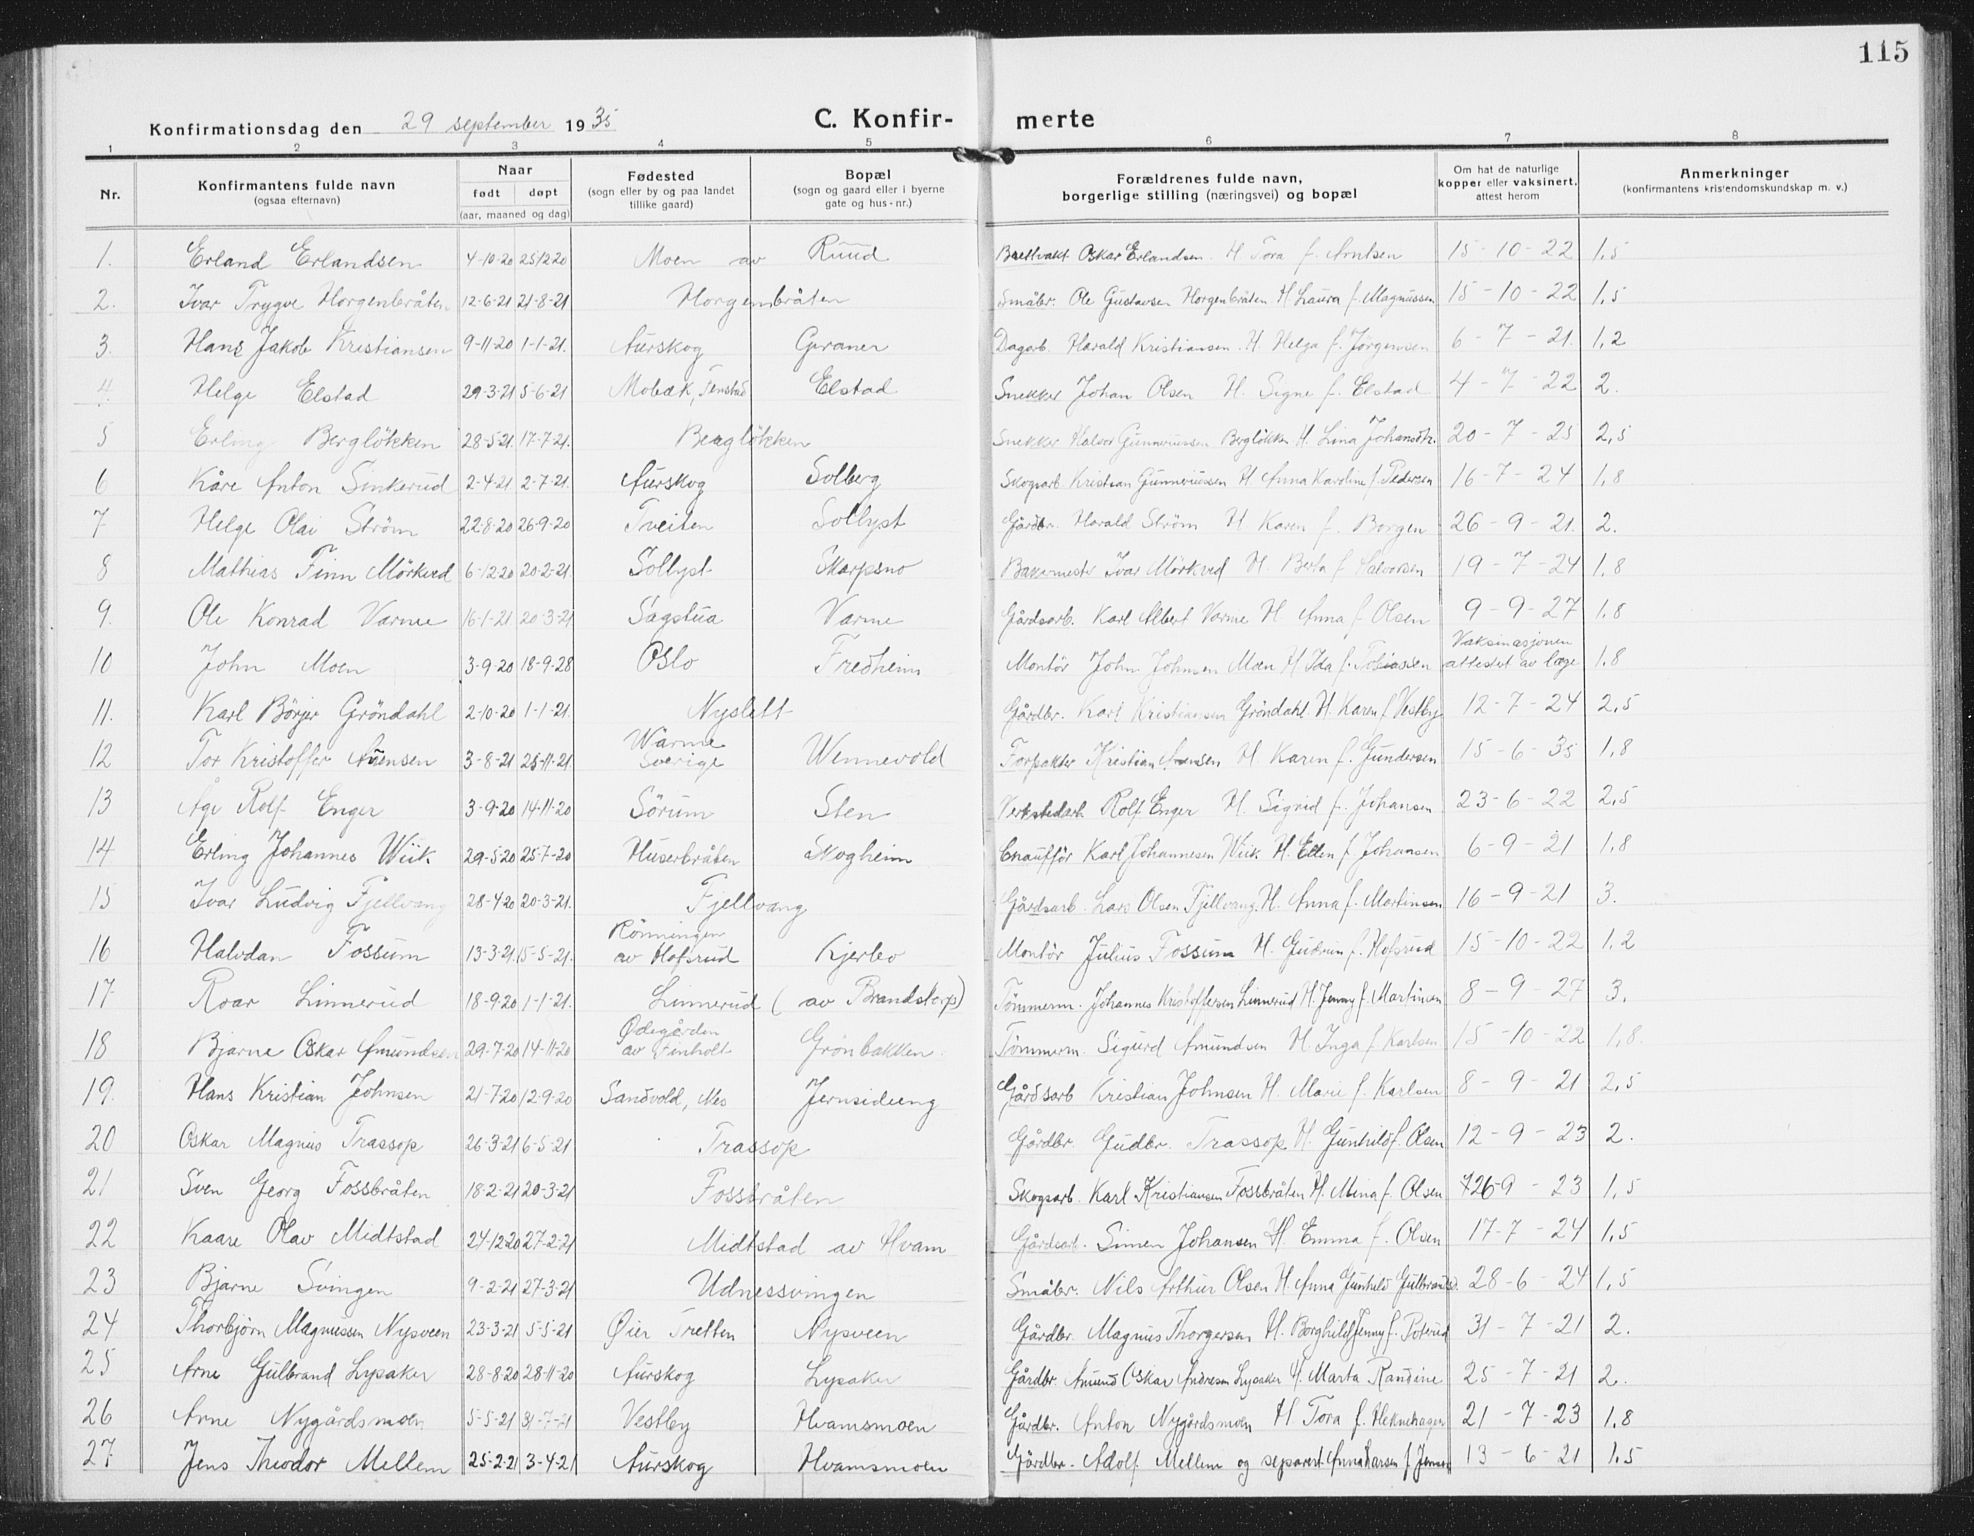 115
Konfirmationsdag den 29 september 1935 C. Konfir- merte
1 2 3 4 5 6 7 8
Nr. Konfirmantens fulde navn (ogsaa efternavn) Naar født døpt (aar, maaned og dag) Fødested (sogn eller by og paa landet tillike gaard) Bopæl (sogn og gaard eller i byerne gate og hus-nr.) Forældrenes fulde navn, borgerlige stilling (næringsvei) og bopæl Om hat de naturlige kopper eller vaksinert, attest herom Anmerkninger (konfirmantens kristendomskundskap m. v.)
1. Erland Erlandsen 4-10-20 25/12 20 Moen av Ruud Oskar Erlandsen. H. Tora f. Arntsen 15-10-22 1,5
2. Ivar Trygve Horgenbråten 12-6-21 21-8-21 Horgenbråten Småbr. Ole Gustavsen Horgenbråten H. Laura f. Magnussen 15-10-22 1,5
3. Hans Jakob Kristiansen 9-11-20 1-1-21. Aurskog Graner Dagarb. Harald Kristiansen. H. Helga f. Jørgensen 6-7-21. 1,2
4. Helge Elstad 29-3-21 5-6-21 Mobæk, Tenstad Elstad Snekker Johan Olsen H. Signe f. Elstad 4-7-22 2.
5 Erling Berglökken 28-5-21. 17-7-21. Berglökken Snekker Halvor Gunneriussen Berglökken H. Lina Johansdtr. 20-7-25 2,5
6 Kåre Anton Sinkerud 2-4-21 2-7-21. Aurskog Solberg Skogsarb. Kristian Gunneriussen H. Anna Karoline f. Pedersen 16-7-24 1,8
7 Helge Olai Ström 22-8-20 26-9-20 Tveiten Sollyst Gårdbr. Harald Ström H. Karen f. Borgen 26-9-21. 2.
8 Mathias Finn Mörkved 6-12-20 20-2-21. Sollyst Skarpsno Bakermester Ivar Mörkved H. Berta f. Halvorsen 19-7-24 1,8
9. Ole Konrad Varme 16-1-21 20-3-21 Sagstua Varme Gårdsarb. Karl Albert Varme H. Anna f. Olsen 9-9-27 1,8
10 John Moen 3-9-20 18-9-28 Oslo Fredheim Montör John Johnsen Moen H. Ida f. Tobiassen Vaksinasjonen attestet av læge 1,8
11. Karl Börjer Gröndahl 2-10-20 1-1-21. Nyslett Gårdbr. Karl Kristiansen Gröndahl. H. Karen f. Vestby 12-7-24 2,5
12 Tor Kristoffer Auensen 3-8-21 25-11-21. Warme Sverige Wennevold Forpakter Kristian Auensen H. Karen f. Gundersen 15-6-35 1,8
13 Åge Rolf Enger 3-9-20 14-11-20 Sörum Sten Verkstedarb. Rolf Enger H. Sigrid f. Johansen 23-6-22 2,5
14 Erling Johannes Wiik 29-5-20 25-7-20 Huserbråten Skogheim Chaufför Karl Johannesen Wiik H. Ellen f. Johansen 6-9-21 1,8
15 Ivar Ludvig Fjellvang 28-4-20 20-3-21. Fjellvang Gårdsarb. Lars Olsen Fjellvang. H. Anna f. Martinsen 16-9-21 3.
16 Halvdan Fossum 13-3-21. 15-5-21. Rönningen av Hofsrud Kjerbo Montör Julius Fossum H. Gudrun f. Hofsrud 15-10-22 1,2
17 Roar Linnerud 18-9-20 1-1-21. Linnerud (av Brandstorp) Tömmerm. Johannes Kristoffersen Linnerud H. Jenny f. Martinsen 8-9-27 3.
18 Bjarne Oskar Amundsen 29-7-20 14-11-20 Ødegården av Finholt Grönbakken. Tömmerm. Sigurd Amundsen H. Inga f. Karlsen 15-10-22 1,8.
19. Hans Kristian Johnsen 21-7-20 12-9-20 Sandvold, Nes Jernsideeng Gårdsarb Kristian Johnsen H. Marie f. Karlsen 8-9-21 2,5
20 Oskar Magnus Trassop 26-3-21 6-5-21 Trassop Gårdbr. Gudbr. Trassop H. Gunhild f. Olsen 12-9-23 2.
21 Sven Georg Fossbråten 18-2-21 20-3-21 Fossbråten Skogsarb. Karl Kristiansen Fossbråten H. Mina f. Olsen 26-9-23 1,5
22 Kaare Olav Midtstad 24-12-20 27-2-21 Midtstad av Hvam Gårdsarb. Simen Johansen H. Emma f. Olsen 17-7-24 1,5
23 Bjarne Svingen 9-2-21 27-3-21 Udnessvingen Småbr. Nils Arthur Olsen H. Anna Gunhild Gulbrands. 28-6-24 1,5
24 Thorbjørn Magnussen Nysveen 23-3-21 5-5-21 Øier Tretten Nysveen Gårdbr. Magnus Thorgersen H. Borghild Jenny f. Poterud 31-7-21 2.
25 Arne Gulbrand Lysaker 28-8-20 28-11-20 Aurskog Lysaker Gårdbr. Amund Oskar Andresen Lysaker H. Marta Randine 25-7-21 2.
26 Arne Nygårdsmoen 5-5-21 31-7-21 Vestby Hvamsmoen Gårdbr. Anton Nygårdsmoen H. Tora f. Heknehagen 21-7-23 1,8
27 Jens Theodor Mellem 25-2-21 3-4-21 Aurskog Hvamsmoen Gårdbr. Adolf Mellem og separert Anna Larsen f. Jensen 13-6-21 1,5